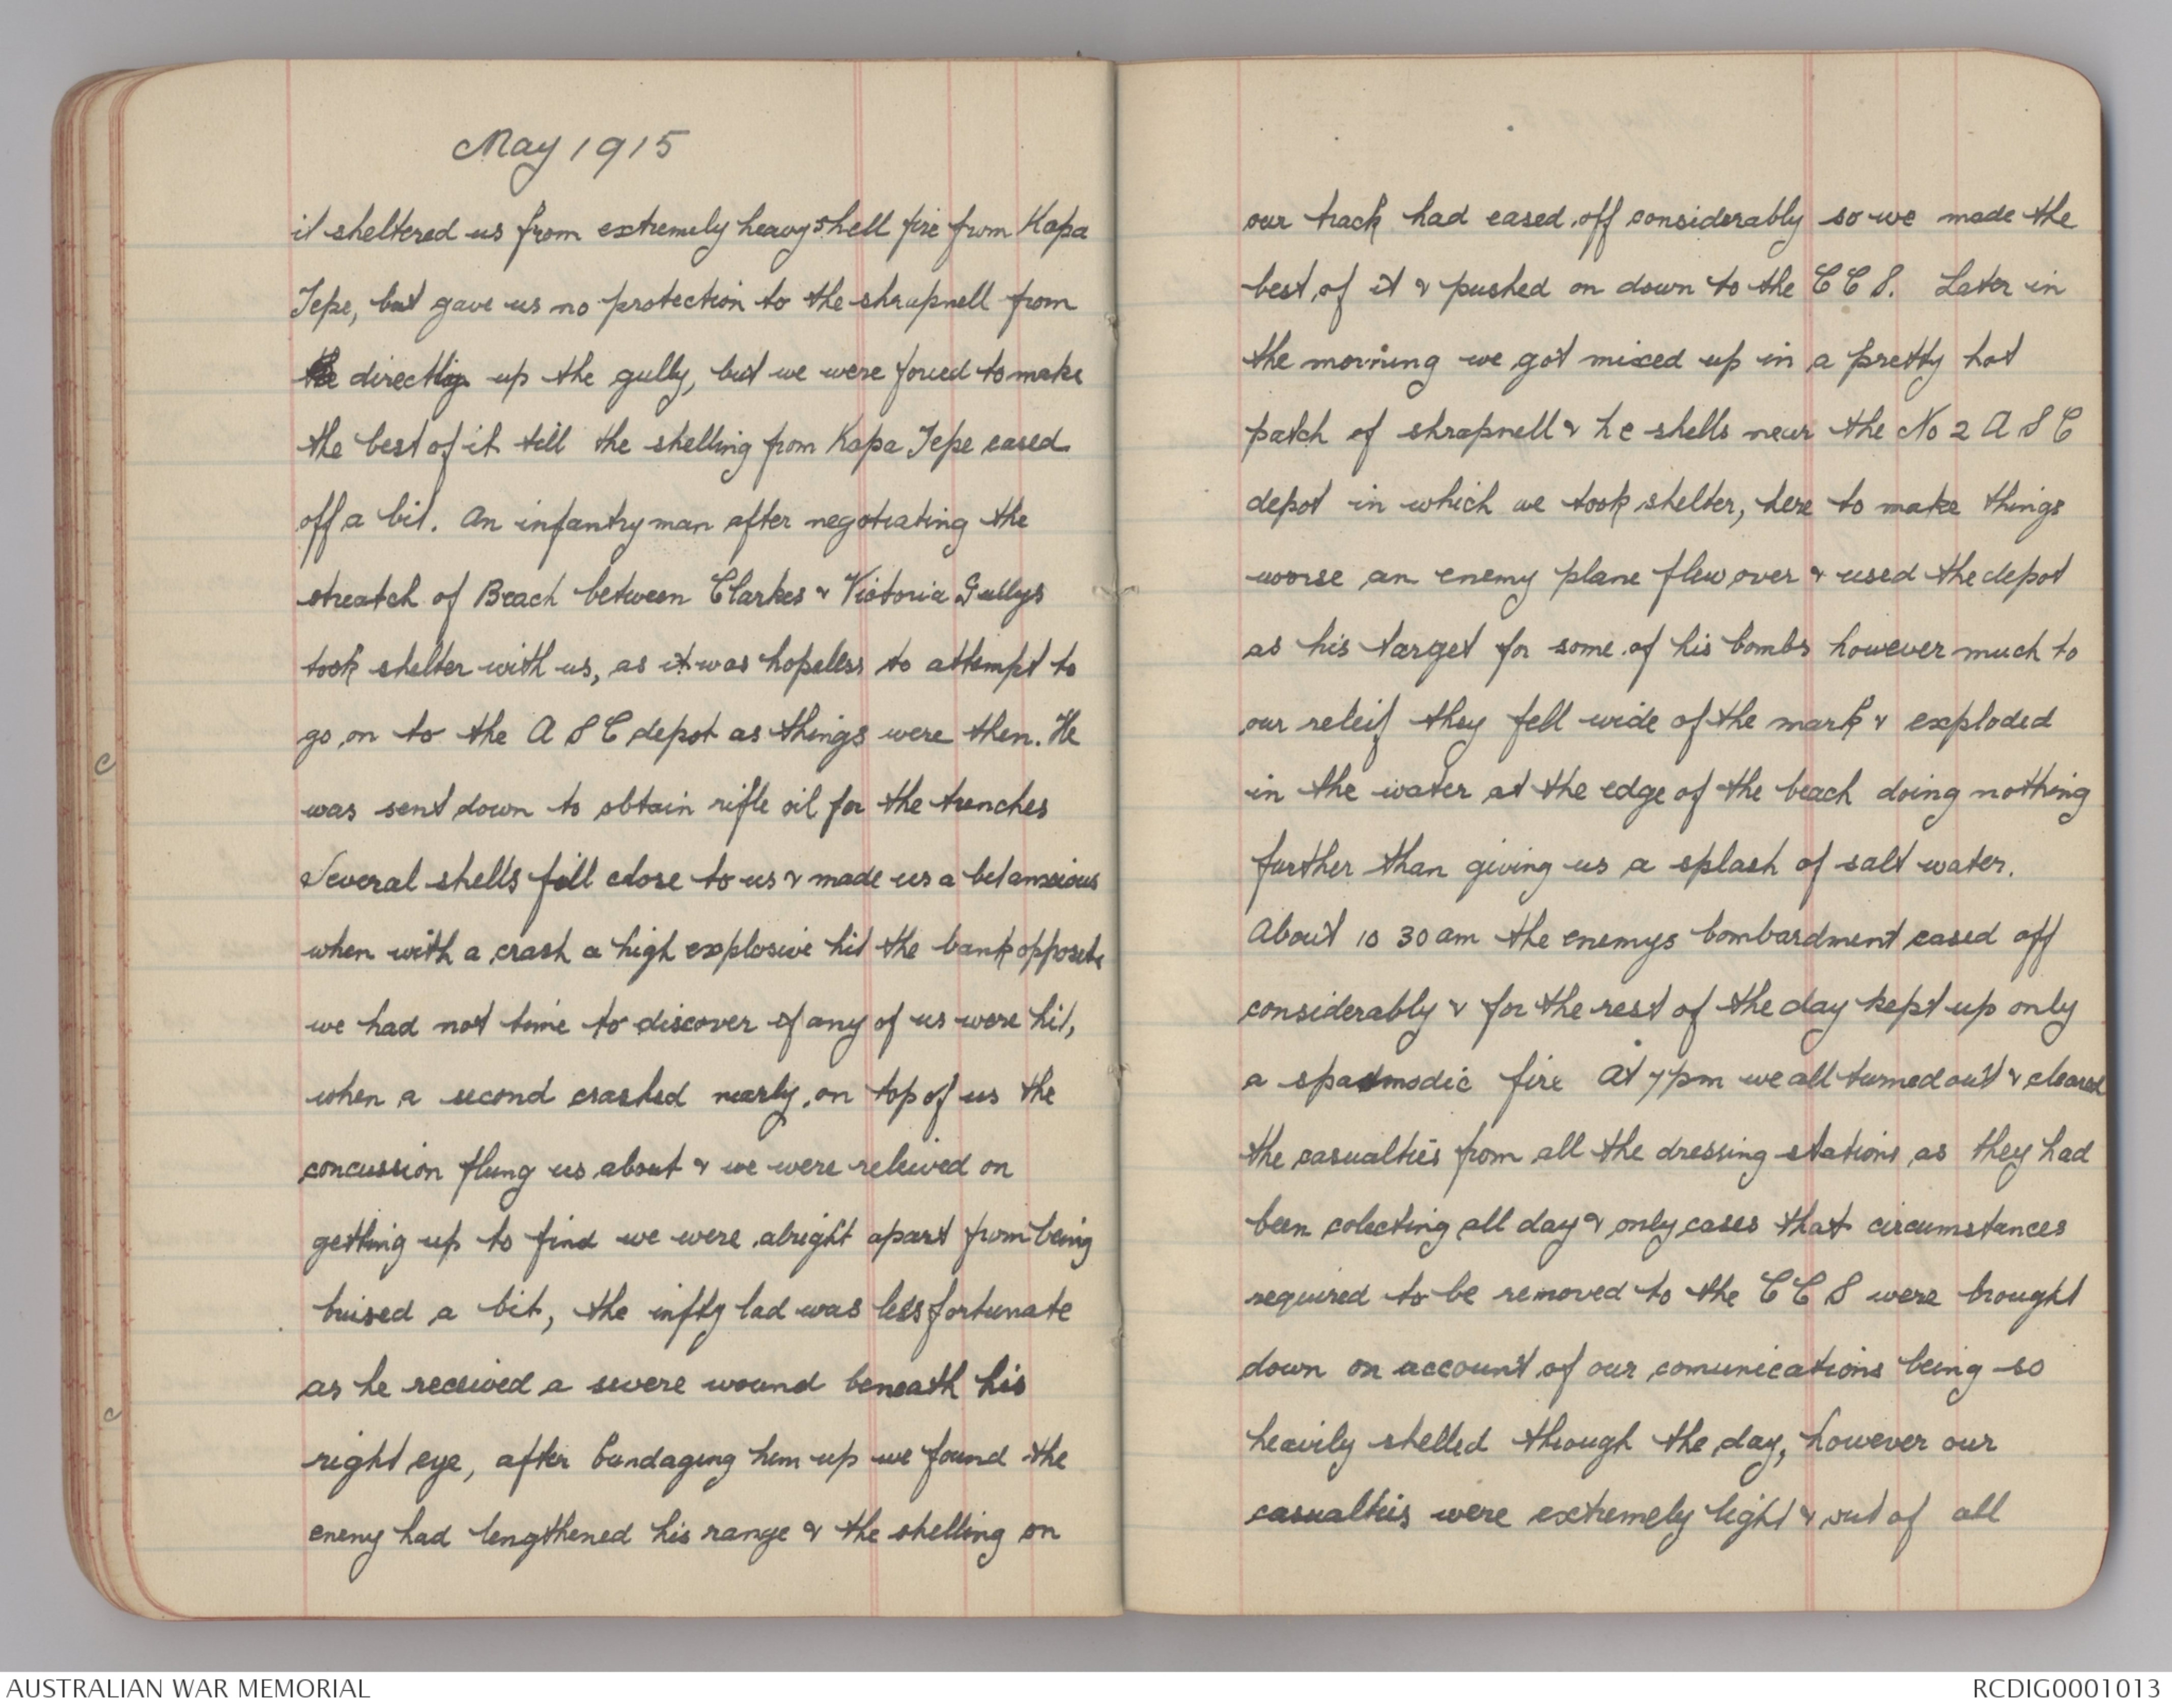 May 1915
it sheltered us from extremely heavy shell fire from Kapa
Tepe, but gave us no protection to the shrapnell from
the directly up the gully, but we were forced to make
the best of it till the shelling from Kapa Tepe eased
off a bit. An infantryman after negotiating the
streatch of Beach between Clarkes & Victoria Gullys
took shelter with us, as it was hopeless to attempt to
go on to the A S C depot as things were then. He
was sent down to obtain rifle oil for the trenches
Several shells fell close to us & made us a bit anxious
when with a crash a high explosive hit the bank opposite
we had not time to discover if any of us were hit,
when a second crashed nearly on top of us the
concussion flung us about & we were releived on
getting up to find we were alright apart from being
buised a bit, the infty lad was less fortunate
as he received a severe wound beneath his
right eye, after bandaging him up we found the
enemy had lengthened his range & the shelling on
our track had eased off considerably so we made the
best of it & pushed on down to the C C S. Later in
the morning we got mixed up in a pretty hot
patch of shrapnell & h e shells near the No 2 A S C
depot in which we took shelter, here to make things
worse an enemy plane flew over & used the depot
as his target for some of his bombs however much to
our releif they fell wide of the mark & exploded
in the water at the edge of the beach doing nothing
further than giving us a splash of salt water.
About 10 30 am the enemys bombardment eased off
considerably & for the rest of the day kept up only
a spasmodic fire At 7 pm we all turned out & cleared
the casualties from all the dressing stations as they had
been colecting all day & only cases that circumstances
required to be removed to the C C S were brought
down on account of our comunications being so
heavily shelled through the day, however our
casualties were extremely light & out of all
c
c
AUSTRALIAN WAR MEMORIAL
RCDIG0001013